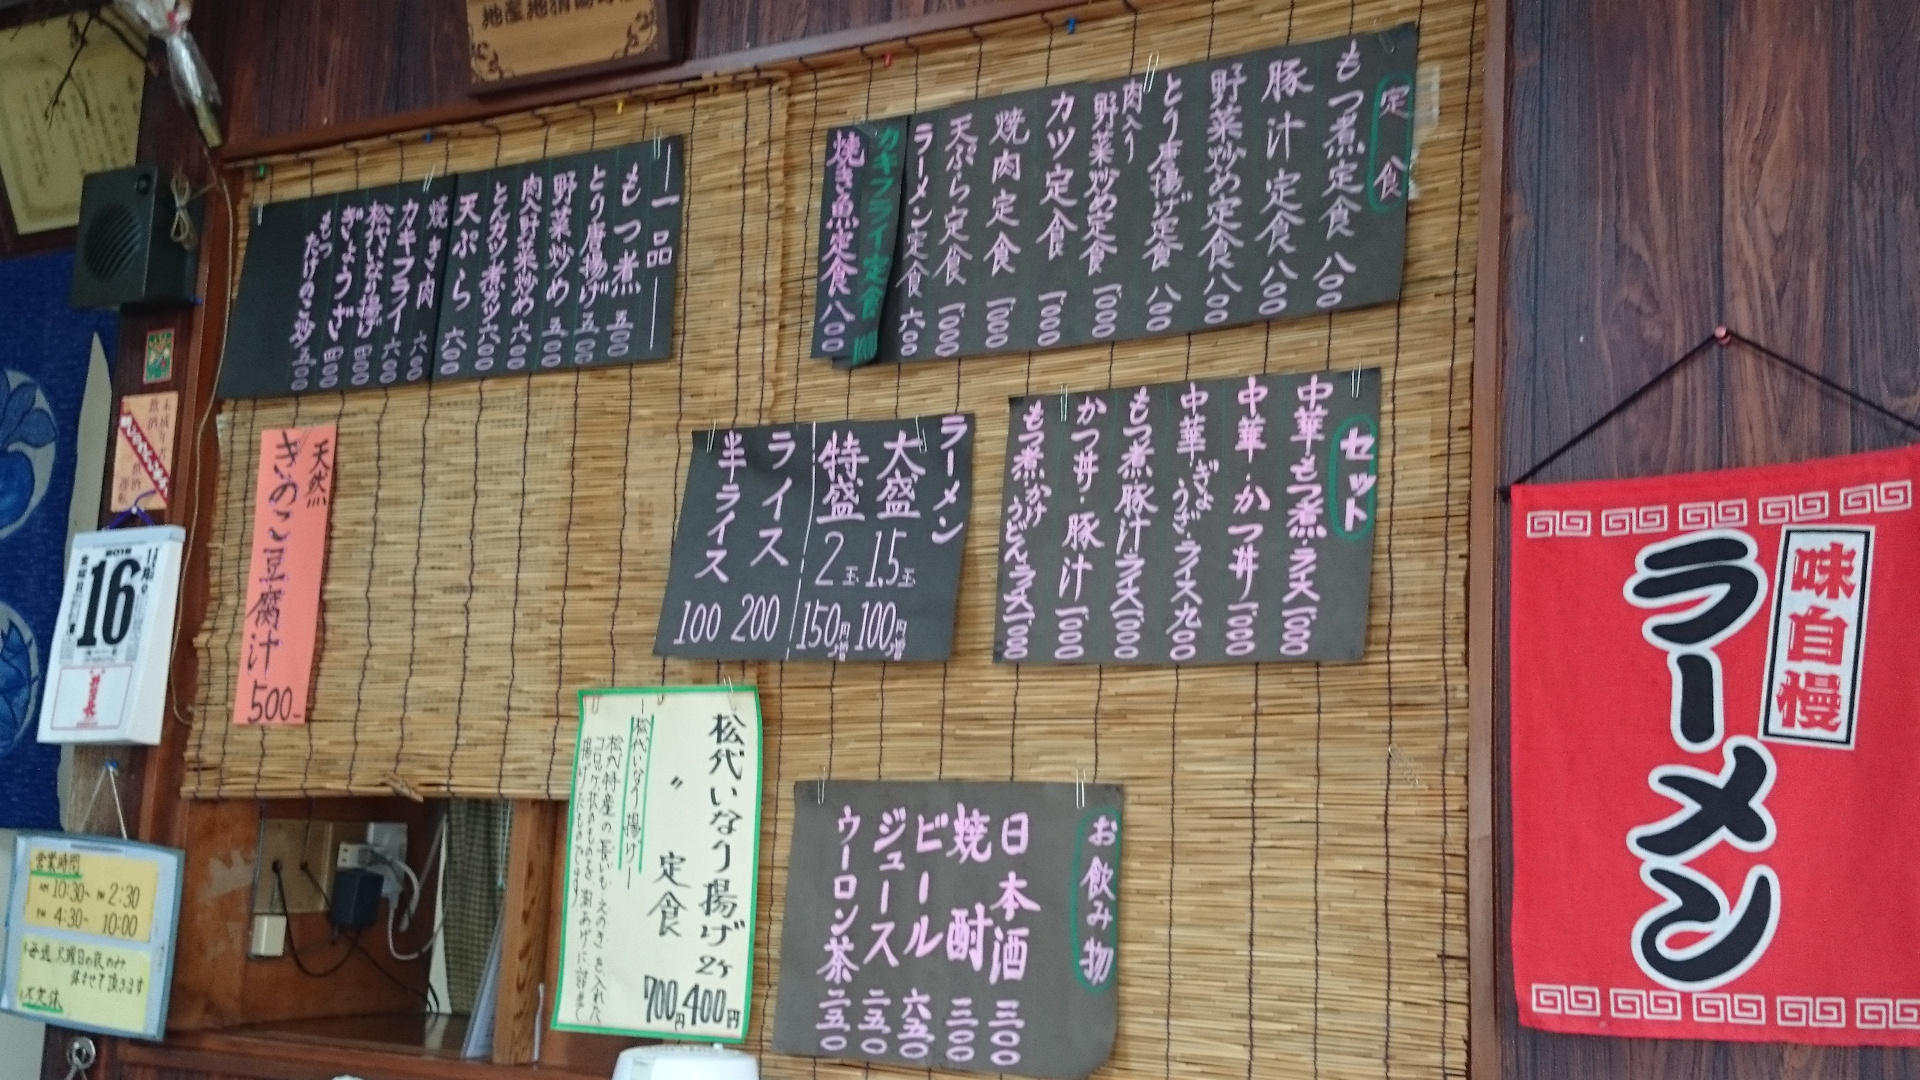 定食
もつ煮定食 八〇〇
豚汁定食 八〇〇
野菜炒め定食 八〇〇
とり唐揚げ定食 八〇〇
肉入り
野菜炒め定食 一、〇〇〇
カツ定食 一、〇〇〇
焼肉定食 一、〇〇〇
天ぷら定食 一、〇〇〇
ラーメン定食 六〇〇
カキフライ定食
焼き魚定食 八〇〇
一品
もつ煮 五〇〇
とり唐揚げ 五〇〇
野菜炒め 五〇〇
肉入野菜炒め 六〇〇
とんカツ煮カツ 六〇〇
天ぷら 六〇〇
焼き肉 六八〇
カキフライ 六〇〇
松代いなり揚げ 四〇〇
ぎょうざ 四〇〇
もつ
たけのこ炒 五〇〇
セット
中華・もつ煮・ライス 一、〇〇〇
中華・かつ丼 一、〇〇〇
中華・ぎょうざ・ライス 九〇〇
もつ煮・豚汁・ライス 一、〇〇〇
かつ丼・豚汁 一、〇〇〇
もつ煮・かけうどん・ライス 一、〇〇〇
ラーメン
大盛 1.5玉 100円増
特盛 2玉 150円増
ライス 200
半ライス 100
天然
きのこ豆腐汁 500-
松代いなり揚げ 2ケ 400円
〃 定食 700円
松代いなり揚げ
お飲み物
日本酒 三〇〇
焼酎 三〇〇
ビール 六五〇
ジュース 二五〇
ウーロン茶 二五〇
味自慢
ラーメン
16
営業時間
AM 10:30〜PM 2:30
PM 4:30〜10:00
毎週火曜日の夜のみ
休ませて頂きます